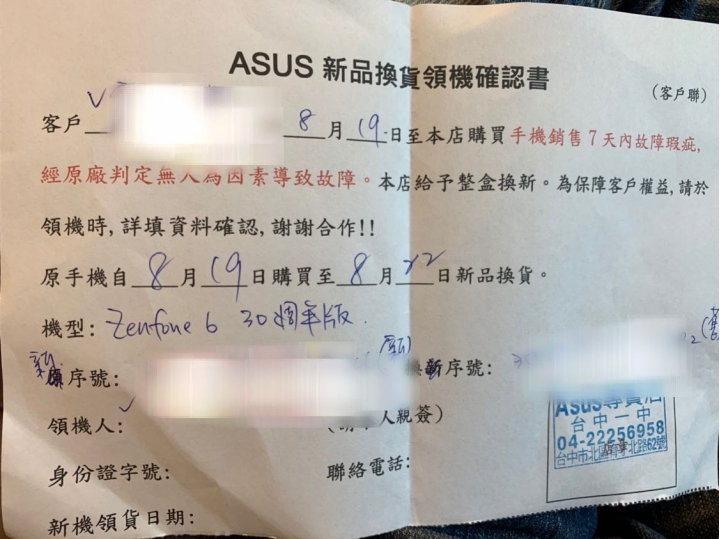 ASUS 新品換貨領機確認書
(客戶聯)
客戶 8月19日至本店購買手機銷售7天內故障瑕疵,
經原廠判定無人為因素導致故障。本店給予整盒換新。為保障客戶權益,請於
領機時,詳填資料確認,謝謝合作!!
原手機自8月19日購買至8月22日新品換貨。
機型: Zenfone 6 30週年版
序號: 序號:
領機人: 人親簽)
身份證字號: 聯絡電話:
新機領貨日期:
台中一中
04-22256958